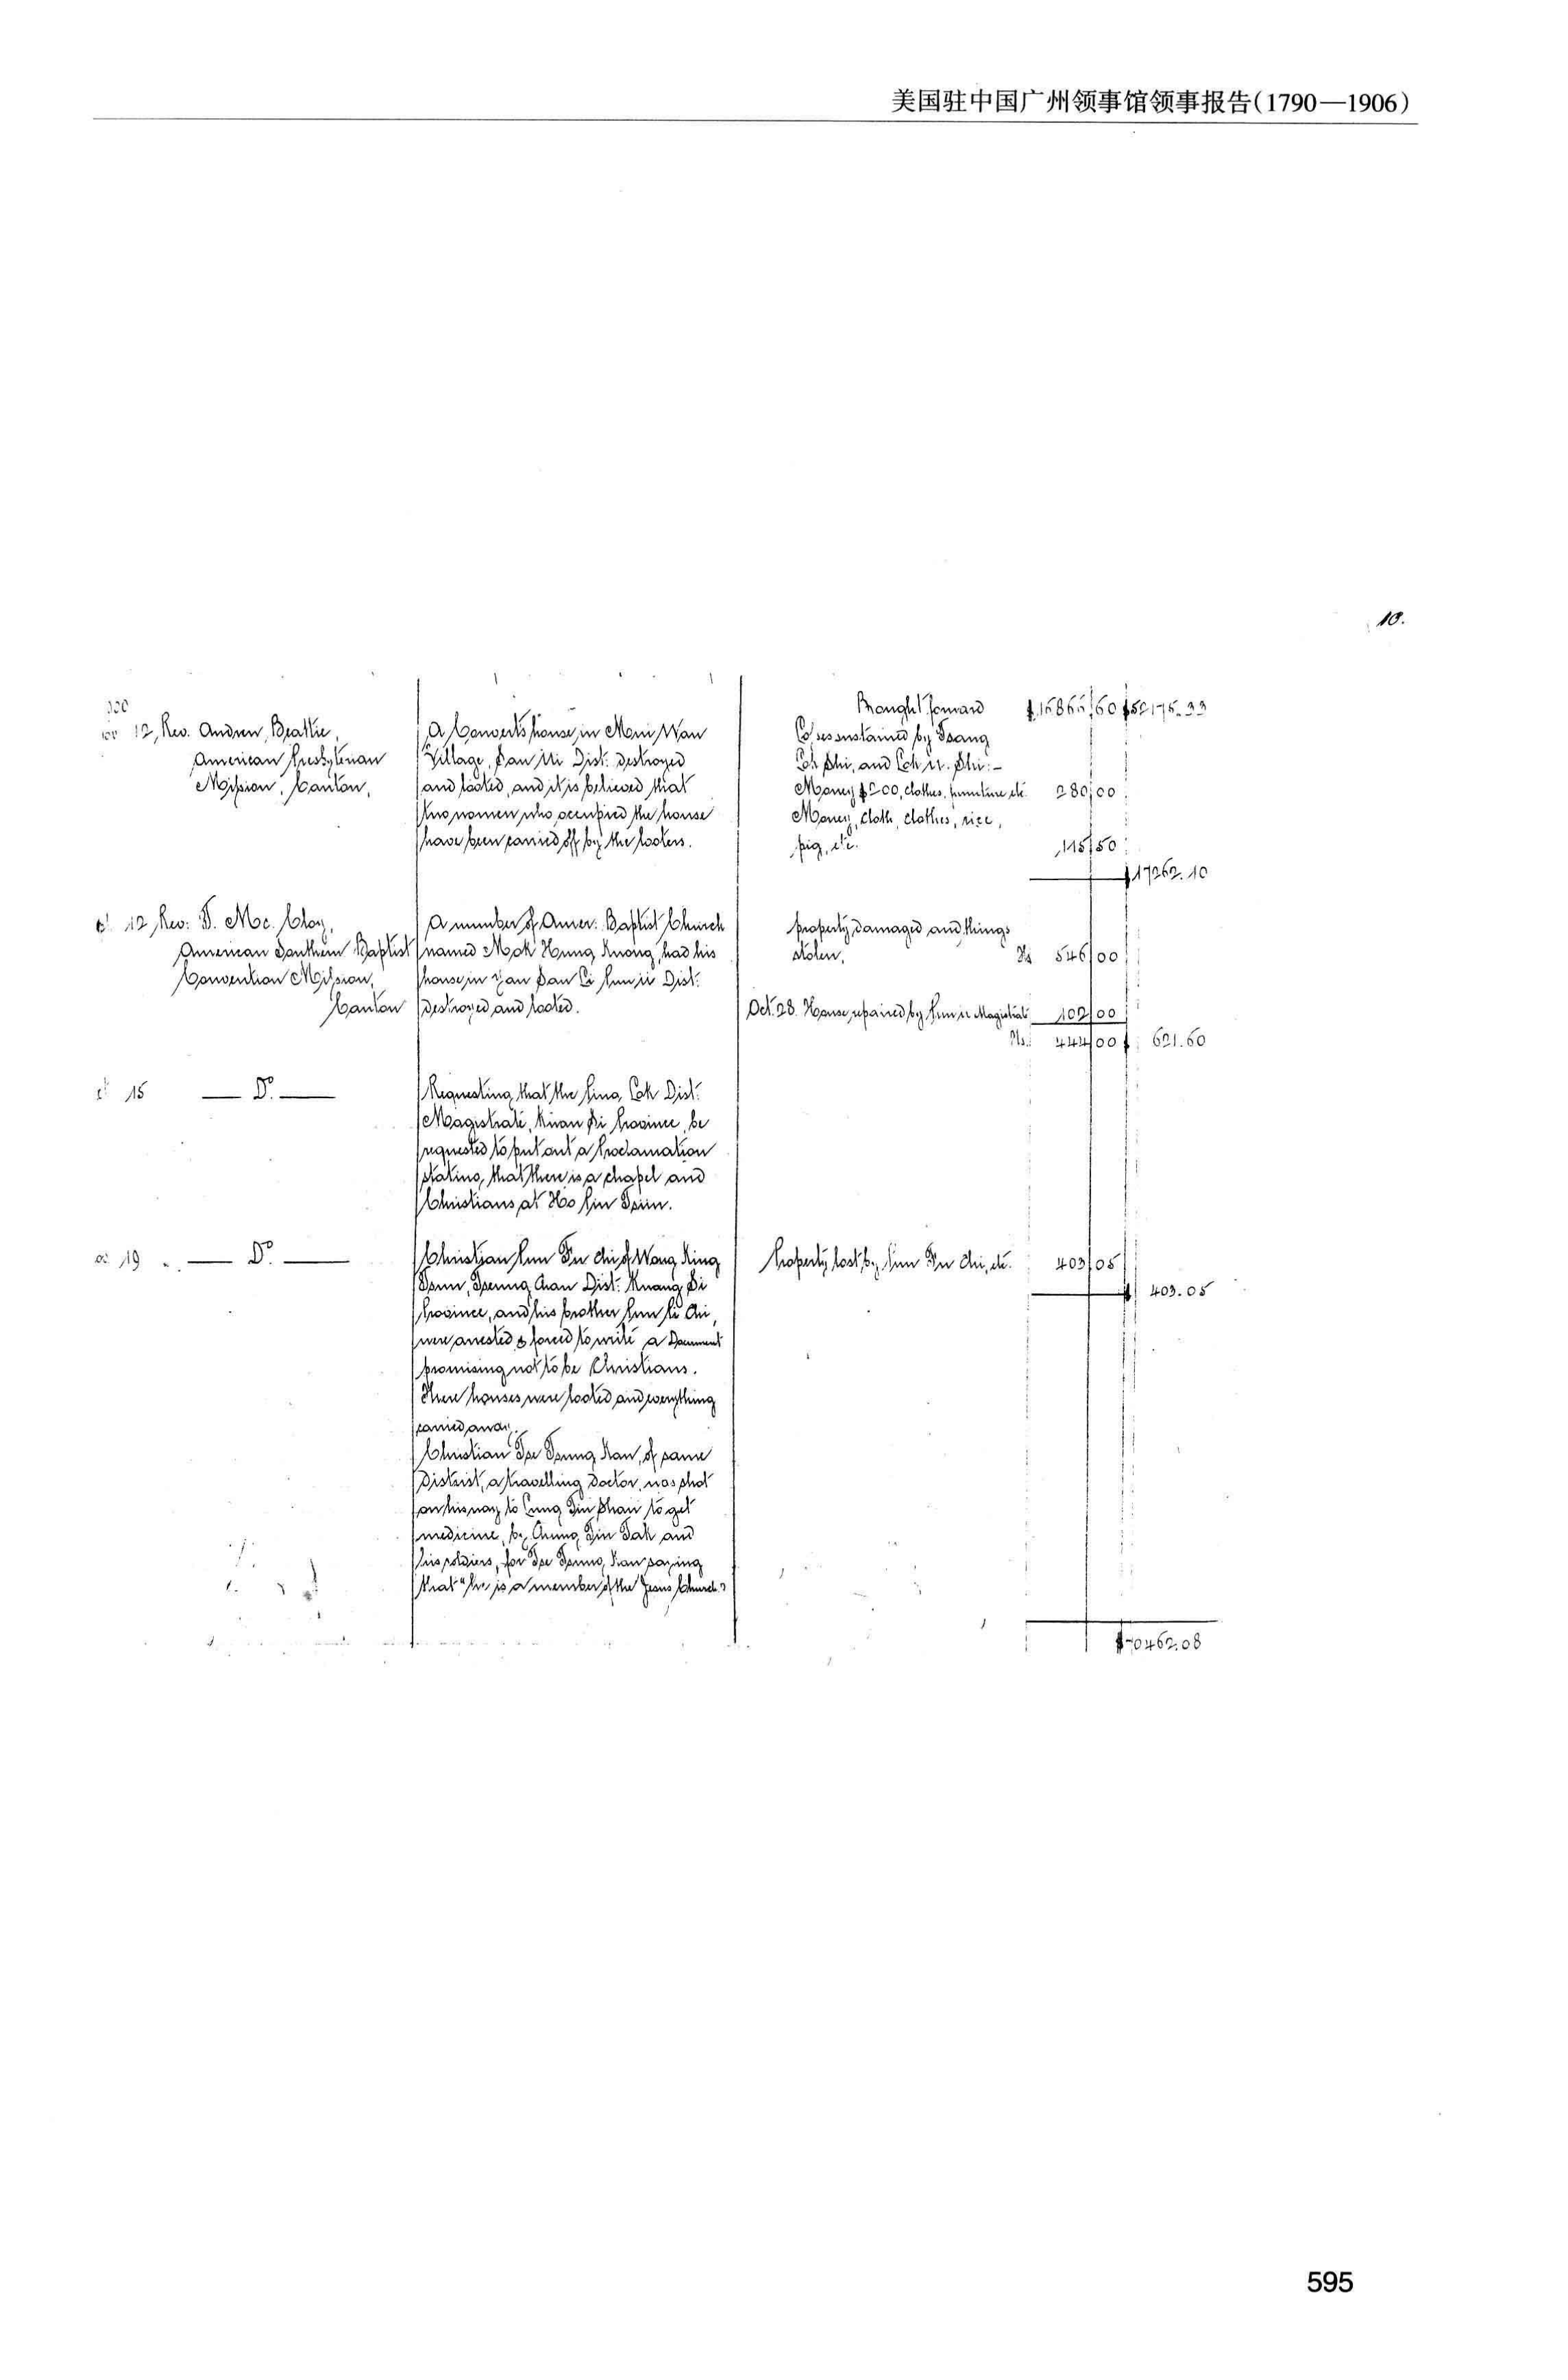 美国驻中国广州领事馆领事报告(1790—1906)
10.
Brought forward $16866 60 $52175.33
12, Rev. Andrew Beattie,
American Presbyterian
Mission, Canton,
A Convert's house, in Moni Wan
Village, San Ui Dist. destroyed
and looted, and it is believed that
two women who occupied the house
have been carried off by the looters.
Losses sustained by Tsang
Lok Shi, and Lok U. Shi:-
Money $200, clothes, furniture etc. 280 00
Money, cloth, clothes, rice,
pig, etc. 115 50
$17262.10
12, Rev: T. Mc. Cloy,
American Southern Baptist
Convention Mission,
Canton
A number of Amer: Baptist Church
named Mok Hung Kwong, had his
house in Yan San Li Pun U Dist:
destroyed and looted.
Property damaged and things
stolen, 546 00
Oct. 28. House repaired by Pun U Magistrate 102 00
444 00 $ 621.60
15 — Do. —
Requesting that the Ping Lok Dist:
Magistrate, Kwan Si Province, be
requested to put out a Proclamation
stating that there is a chapel and
Christians at Ho Pin Tsün.
19 — Do. —
Christian Pun Fu Chi of Wang King
Tsun, Tseung Chan Dist: Kwang Si
Province, and his brother Pun Li Chi,
were arrested & forced to write a Document
promising not to be Christians.
There houses were looted and everything
carried away.
Christian Tse Tsung Kan, of same
District, a travelling Doctor, was shot
on his way to Lung Tin Shan to get
medicine, by Chung Tin Tak and
his soldiers, for Tse Tsung Kan saying
that "he is a member of the Jesus Church."
Property lost by Pun Fu Chi, etc. 403 05
$ 403.05
$70462.08
595